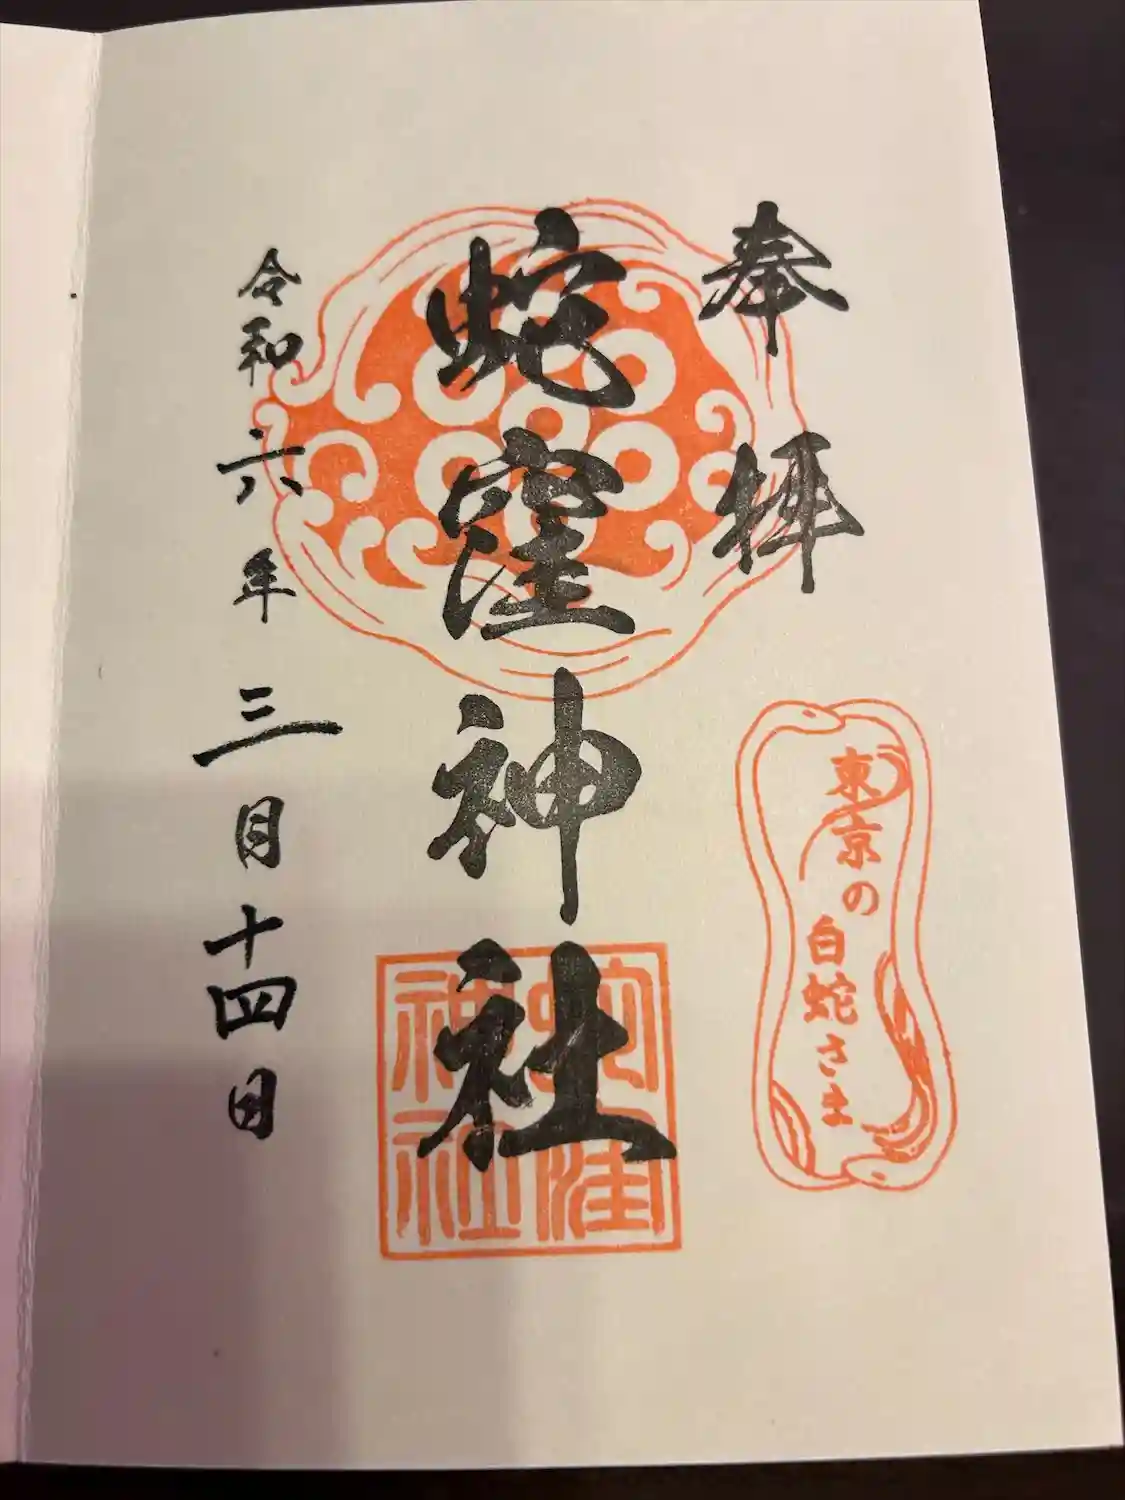 奉拝
東京の
白蛇さま
蛇窪神社
蛇窪
神社
令和六年三月十四日